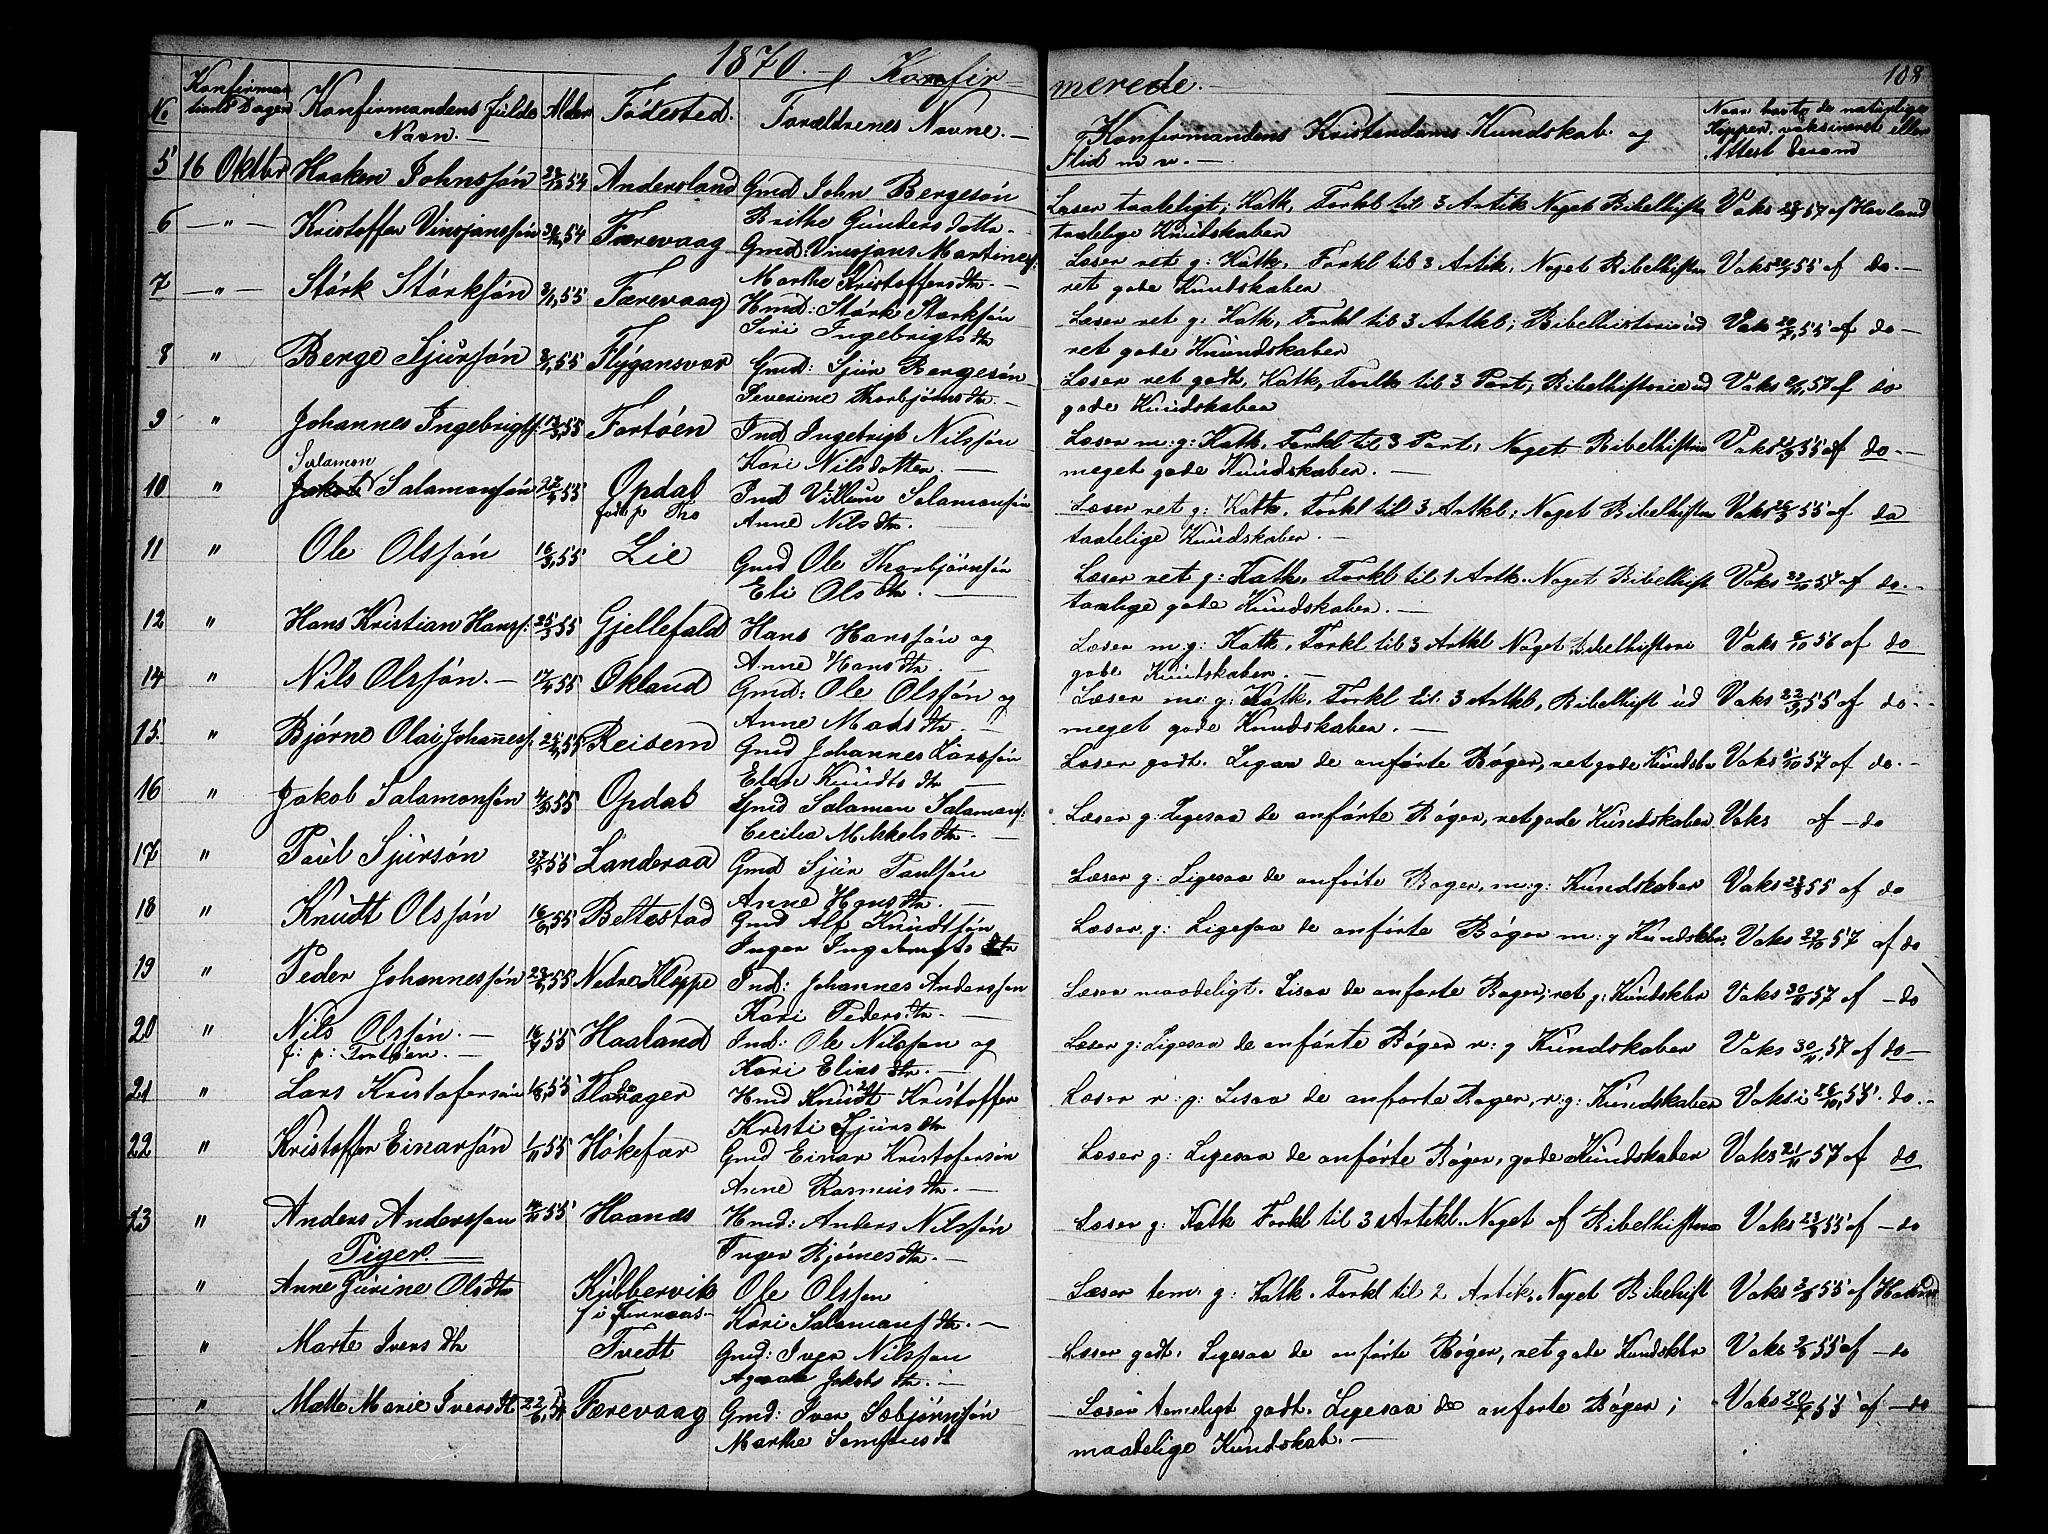 1870. Konfir-
merede.
108
No.
Konfirma-
tions Dagen
Konfirmandens fulde
Navn.
Alder
Fødested.
Forældrenes Navne.
Konfirmandens Kristendoms Kundskab og
Flid m v.
Naar havt de naturlige
Kopper, vaksineret eller
Attest derom
5 16 Oktbr Haaken Johnssøn 54 Andersland Gmd John Bergesøn
Brithe Gundersdotter
Læser taaleligt; Katk, Forkl til 3 Artik Noget Bibelhistr Vaks 57 af Havland
taalelige Kundskaber
6 " Kristoffer Vinsjanssøn 54 Færevaag Gmd: Vinsjans Martines
Marthe Kristoffersdtr.
Læser ret g: Katk, Forkl til 3 Artik, Noget Bibelhistr Vaks 55 af do.
ret gode Kundskaber
7 " Størk Størksøn 55 Færevaag Hmd: Størk Størksøn
Siri Ingebrigtsdtr
Læser ret g: Katk, Forkl til 3 Artkl; Bibelhistorie ud Vaks 20/7 55 af do
ret gode Kundskaber
8 " Berge Sjursøn 55 Flygansvær Gmd: Sjur Bergesøn
Severine Thorbjørnsdtr.
Læser ret godt, Katk, Forkl til 3 Part, Bibelhistorie ud Vaks 57 af do
gode Kundskaber
9 " Johannes Ingebrigts. 55 Fortøen Ind Ingebrigt Nilssøn
Kari Nilsdotter.
Læser m: g: Katk, Forkl til 3 Part, Noget Bibelhistr Vaks 55 af do.
meget gode Kundskaber.
Salamon
10 " Jakob Salamonsøn 55 Opdal Ind Villum Salamonsøn
Anne Nilsdtr.
Læser ret g: Katk, Forkl til 3 Artkl; Noget Bibelhistr Vaks 55 af do
taalelige Kundskaber.
11 " Ole Olssøn 16/3 55 Lie Gmd Ole Thorbjørnsøn
Eli Olsdtr.
Læser ret g: Katk, Forkl til 1 Artk. Noget Bibelhist Vaks 54 af do.
taalige gode Kundskaber.
12 " Hans Kristian Hans. 25/3 55 Gjellefald Hans Hanssøn og
Anne Hansdtr.
Læser m: g: Katk, Forkl til 3 Artkl Noget Bibelhistori Vaks 56 af do
gode Kundskaber.
14 " Nils Olssøn. 17/4 55 Økland Gmd: Ole Olssøn og
Anne Madsdtr.
Læser m: g: Katk, Forkl til 3 Artkl, Bibelhist ud Vaks 55 af do.
meget gode Kundskaber.
15. " Bjørne Olai Johannes. 55 Reisem Gmd Johannes Larssøn
Elen Knudtsdtr
Læser godt. Ligsaa de anførte Bøger, ret gode Kundskr Vaks 57 af do.
16 " Jakob Salamonsøn 55 Opdal Gmd Salamon Salamons:
Cecilia Mikkelsdtr.
Læser g: Ligesaa de anførte Bøger, ret gode Kundskaber. Vaks af do
17 " Paul Sjursøn 55 Landeraa Gmd Sjur Paulsøn
Anne Hansdtr.
Læser g: Ligesaa de anførte Bøger, m: g: Kundskaber Vaks 55 af do
18 " Knudt Olssøn 16/6 55 Beltestad Gmd Alf Knudtsøn
Inger Ingebrigtsdtr
Læser g: Ligesaa de anførte Bøger m: g Kundskbr. Vaks 57 af do
19 " Peder Johannessøn 55 Nedre Kleppe Ind: Johannes Anderssøn
Kari Pedersdtr.
Læser maadeligt. Lisaa de anførte Bøger, ret g: Kundskbr Vaks 57 af do
20 " Nils Olssøn. 16/7 55 Haaland Ind: Ole Nilssøn og
Kari Eliasdtr.
Læser g: Ligesaa de anførte Bøger r: g Kundskaber Vaks 30/11 57 af do
21 " Lars Kristofersøn 55 Flodager Hmd Knudt Kristoffer
Kristi Sjursdtr
Læser r: g: Lisaa de anførte Bøger, r: g: Kundskaber Vaks 26/10 55. do.
22 " Kristoffer Einarsøn 1/11 55 Høkefær Gmd Einar Kristofersøn
Anne Rasmusdtr.
Læser g: Ligesaa de anførte Bøger, gode Kundskaber Vaks 57 af do
23 " Anders Anderssøn 55 Haanæs Hmd: Anders Nilssøn
Inger Bjørnesdtr.
Læser g: Katk Forkl til 3 Artikl. Noget af Bibelhistori Vaks 55 af do
Piger.
" Anne Gurine Olsdtr Kubbervik Ole Olssøn
f i Finnaas
Kari Salamonsdtr.
Læser tem. g: Katk. Forkl til 2 Artik, Noget Bibelhist Vaks 55 af
" Marte Iversdtr Tvedt Gmd: Iver Nilssøn
Agaate Jakobsdtr.
Læser godt. Ligesaa de anførte Bøger, ret gode Kundskbr Vaks 55 af do
" Mette Marie Iversdtr 22/6 Færevaag Gmd: Iver Sæbjørnsøn
Marthe Samsonsdtr
Læser temeligt godt. Ligesaa de anførte Bøger; Vaks 55 af do
maadelige Kundskab.